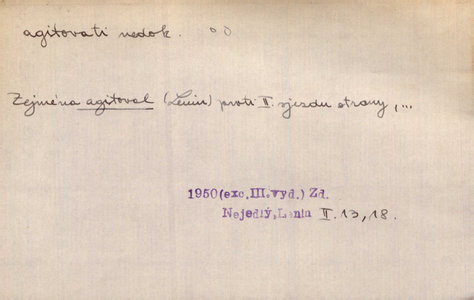 agitovati nedok.
Zejména agitoval (Lenin) proti II. sjezdu strany, ...
1950(exc.III.vyd.) Zd.
Nejedlý, Lenin II. 13, 18.